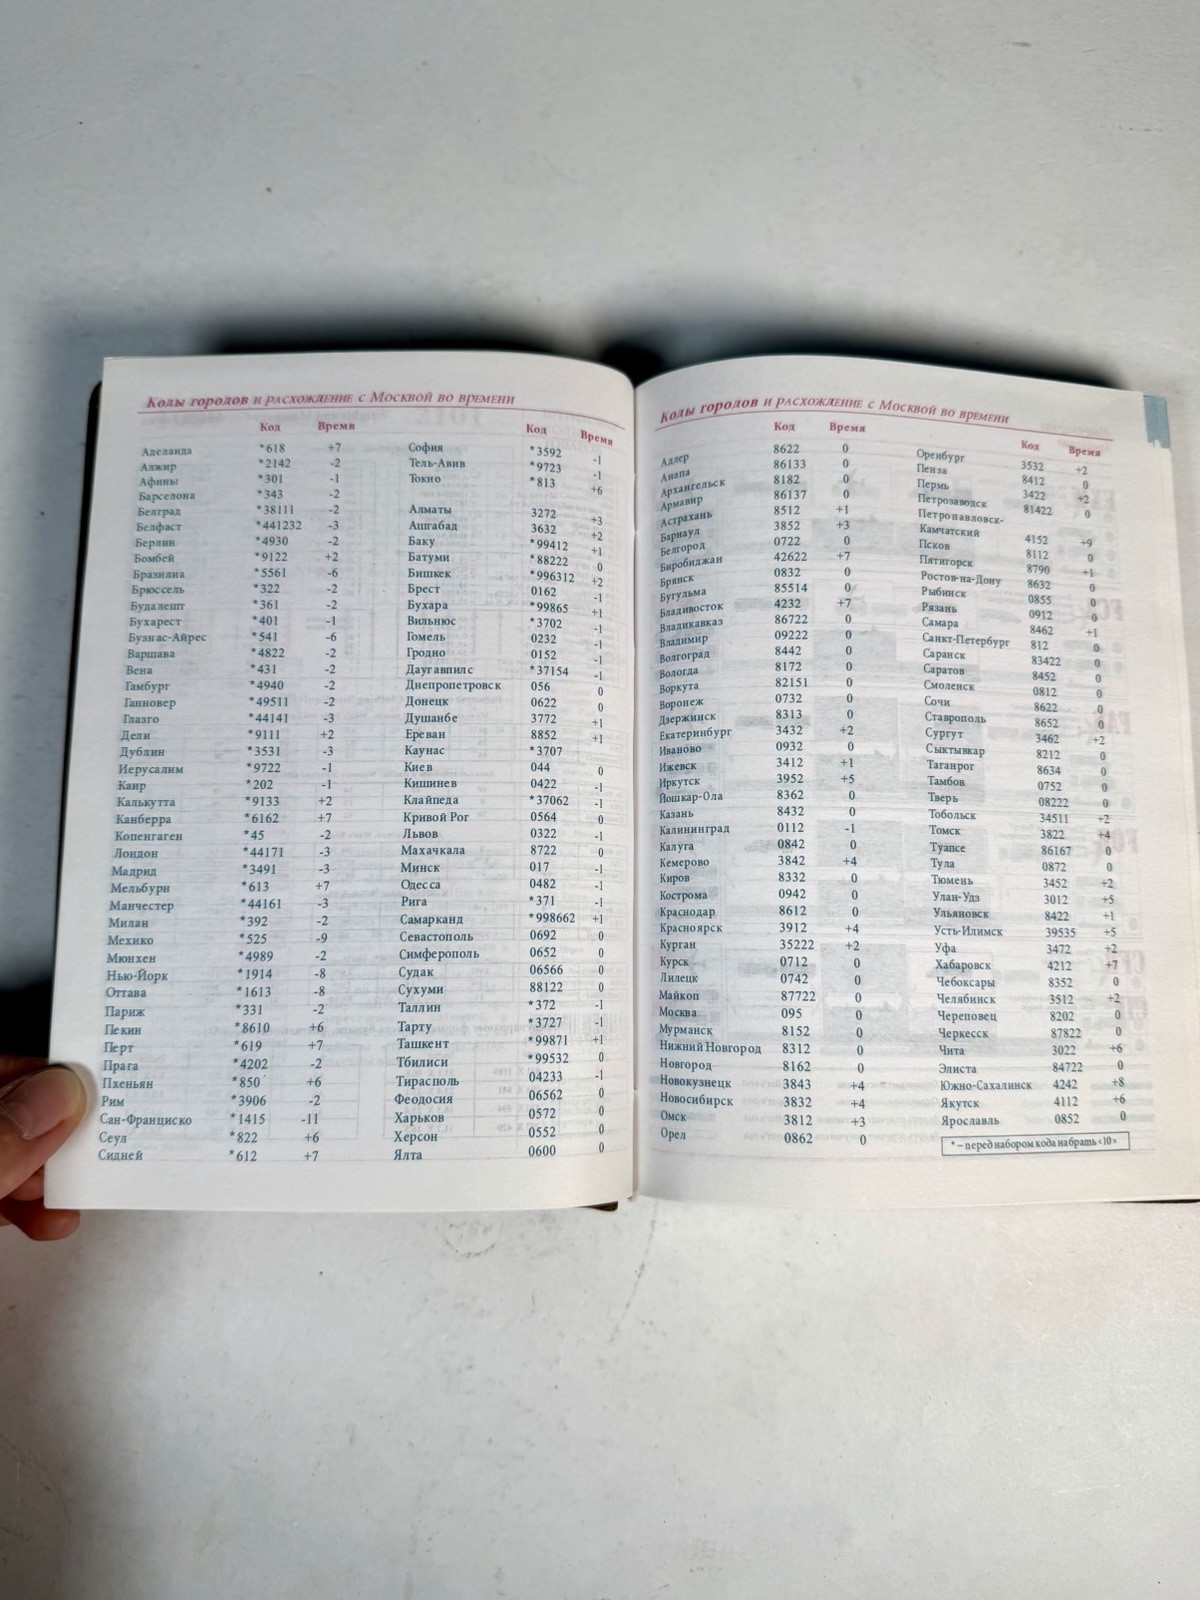 Коды городов и расхождение с Москвой во времени
Код Время
Аделаида *618 +7
Алжир *2142 -2
Афины *301 -1
Барселона *343 -2
Белград *38111 -2
Белфаст *441232 -3
Берлин *4930 -2
Бомбей *9122 +2
Бразилиа *5561 -6
Брюссель *322 -2
Будапешт *361 -2
Бухарест *401 -1
Буэнос-Айрес *541 -6
Варшава *4822 -2
Вена *431 -2
Гамбург *4940 -2
Ганновер *49511 -2
Глазго *44141 -3
Дели *9111 +2
Дублин *3531 -3
Иерусалим *9722 -1
Каир *202 -1
Калькутта *9133 +2
Канберра *6162 +7
Копенгаген *45 -2
Лондон *44171 -3
Мадрид *3491 -3
Мельбурн *613 +7
Манчестер *44161 -3
Милан *392 -2
Мехико *525 -9
Мюнхен *4989 -2
Нью-Йорк *1914 -8
Оттава *1613 -8
Париж *331 -2
Пекин *8610 +6
Перт *619 +7
Прага *4202 -2
Пхеньян *850 +6
Рим *3906 -2
Сан-Франциско *1415 -11
Сеул *822 +6
Сидней *612 +7
Код Время
София *3592 -1
Тель-Авив *9723 -1
Токио *813 +6
Алматы 3272 +3
Ашгабад 3632 +2
Баку *99412 +1
Батуми *88222 0
Бишкек *996312 +2
Брест 0162 -1
Бухара *99865 +1
Вильнюс *3702 -1
Гомель 0232 -1
Гродно 0152 -1
Даугавпилс *37154 -1
Днепропетровск 056 0
Донецк 0622 0
Душанбе 3772 +1
Ереван 8852 +1
Каунас *3707
Киев 044 0
Кишинев 0422 -1
Клайпеда *37062 -1
Кривой Рог 0564 0
Львов 0322 -1
Махачкала 8722 0
Минск 017 -1
Одесса 0482 -1
Рига *371 -1
Самарканд *998662 +1
Севастополь 0692 0
Симферополь 0652 0
Судак 06566 0
Сухуми 88122 0
Таллин *372 -1
Тарту *3727 -1
Ташкент *99871 +1
Тбилиси *99532 0
Тирасполь 04233 -1
Феодосия 06562 0
Харьков 0572 0
Херсон 0552 0
Ялта 0600 0
Коды городов и расхождение с Москвой во времени
Код Время
Адлер 8622 0
Анапа 86133 0
Архангельск 8182 0
Армавир 86137 0
Астрахань 8512 +1
Барнаул 3852 +3
Белгород 0722 0
Биробиджан 42622 +7
Брянск 0832 0
Бугульма 85514 0
Владивосток 4232 +7
Владикавказ 86722 0
Владимир 09222 0
Волгоград 8442 0
Вологда 8172 0
Воркута 82151 0
Воронеж 0732 0
Дзержинск 8313 0
Екатеринбург 3432 +2
Иваново 0932 0
Ижевск 3412 +1
Иркутск 3952 +5
Йошкар-Ола 8362 0
Казань 8432 0
Калининград 0112 -1
Калуга 0842 0
Кемерово 3842 +4
Киров 8332 0
Кострома 0942 0
Краснодар 8612 0
Красноярск 3912 +4
Курган 35222 +2
Курск 0712 0
Липецк 0742 0
Майкоп 87722 0
Москва 095 0
Мурманск 8152 0
Нижний Новгород 8312 0
Новгород 8162 0
Новокузнецк 3843 +4
Новосибирск 3832 +4
Омск 3812 +3
Орел 0862 0
Код Время
Оренбург 3532 +2
Пенза 8412 0
Пермь 3422 +2
Петрозаводск 81422 0
Петропавловск-
Камчатский 4152 +9
Псков 8112 0
Пятигорск 8790 +1
Ростов-на-Дону 8632 0
Рыбинск 0855 0
Рязань 0912 0
Самара 8462 +1
Санкт-Петербург 812 0
Саранск 83422 0
Саратов 8452 0
Смоленск 0812 0
Сочи 8622 0
Ставрополь 8652 0
Сургут 3462 +2
Сыктывкар 8212 0
Таганрог 8634 0
Тамбов 0752 0
Тверь 08222 0
Тобольск 34511 +2
Томск 3822 +4
Туапсе 86167 0
Тула 0872 0
Тюмень 3452 +2
Улан-Удэ 3012 +5
Ульяновск 8422 +1
Усть-Илимск 39535 +5
Уфа 3472 +2
Хабаровск 4212 +7
Чебоксары 8352 0
Челябинск 3512 +2
Череповец 8202 0
Черкесск 87822 0
Чита 3022 +6
Элиста 84722 0
Южно-Сахалинск 4242 +8
Якутск 4112 +6
Ярославль 0852 0
* – перед набором кода набрать «10»